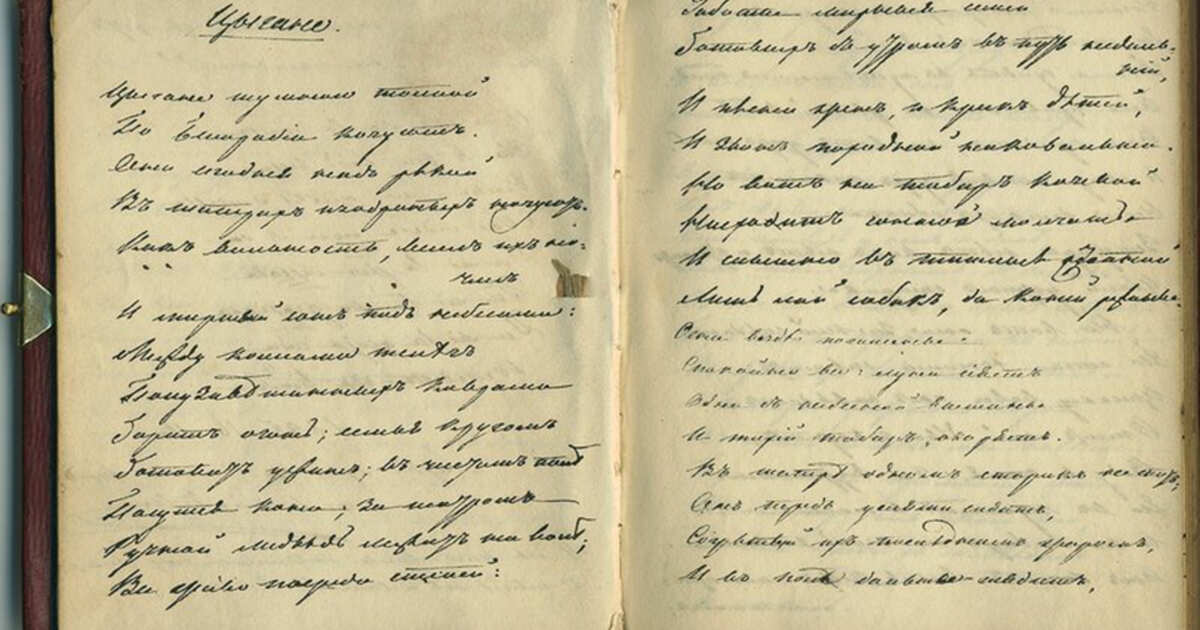 Цыгане.
Цыгане шумною толпой
По Бессарабіи кочуютъ.
Они сегодня надъ рѣкой
Въ шатрахъ изодранныхъ ночуютъ.
Какъ вольность, веселъ ихъ но-
члегъ
И мирный сонъ подъ небесами:
Между колесами телѣгъ
Полузавѣшанныхъ коврами
Горитъ огонь; семья кругомъ
Готовитъ ужинъ; въ чистомъ полѣ
Пасутся кони; за шатромъ
Ручной медвѣдь лежитъ на волѣ;
Все живо посреди степей:
Заботы мирныя семей
Готовыхъ съ утромъ въ путь недаль-
ній,
И пѣсни женъ, и крикъ дѣтей,
И звонъ походной наковальни.
Но вотъ на таборъ кочевой
Нисходитъ сонное молчанье
И слышно въ тишинѣ степной
Лишь лай собакъ, да коней ржанье.
Огни вездѣ погашены.
Спокойно все: луна сіяетъ
Одна съ небесной вышины
И тихій таборъ озаряетъ.
Въ шатрѣ одномъ старикъ не спитъ;
Онъ передъ углями сидитъ,
Согрѣтый ихъ послѣднимъ жаромъ,
И въ поле дальнее глядитъ,